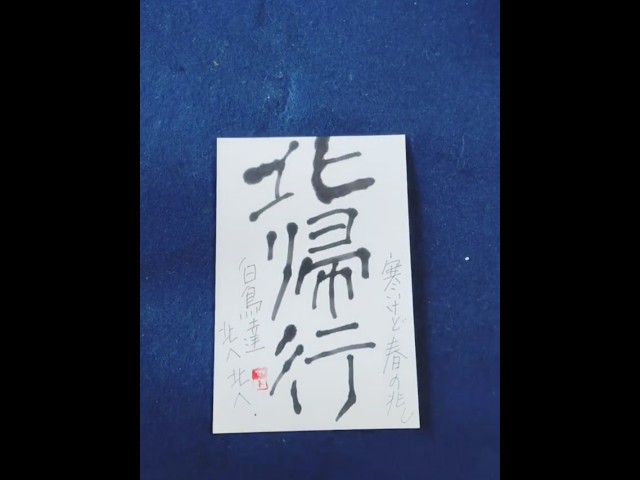 北帰行
寒いけど春の兆し
白鳥達
北へ北へ